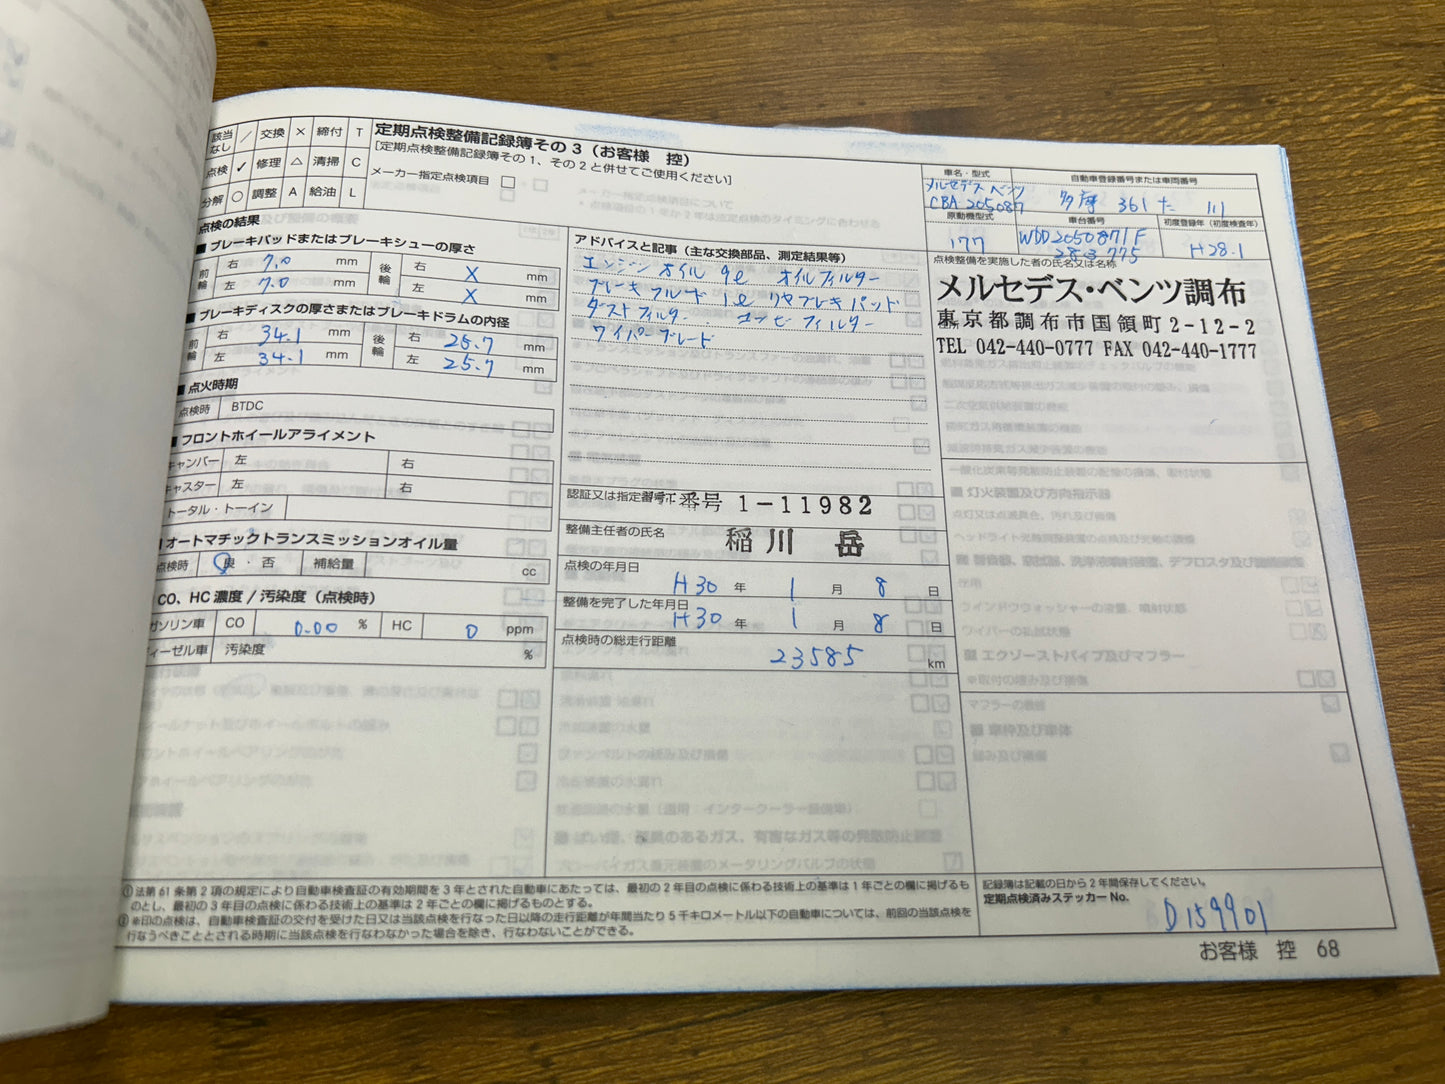 該当なし ／ 交換 × 締付 T
点検 ✓ 修理 △ 清掃 C
分解 ○ 調整 A 給油 L
定期点検整備記録簿その3（お客様 控）
[定期点検整備記録簿その1、その2と併せてご使用ください]
メーカー指定点検項目 □
点検の結果
■ ブレーキパッドまたはブレーキシューの厚さ
前輪 右 7.0 mm 後輪 右 X mm
左 7.0 mm 左 X mm
■ ブレーキディスクの厚さまたはブレーキドラムの内径
前輪 右 34.1 mm 後輪 右 25.7 mm
左 34.1 mm 左 25.7 mm
■ 点火時期
点検時 BTDC
■ フロントホイールアライメント
キャンバー 左 右
キャスター 左 右
トータル・トーイン
■ オートマチックトランスミッションオイル量
点検時 良・否 補給量 cc
CO、HC濃度/汚染度（点検時）
ガソリン車 CO 0.00 % HC 0 ppm
ディーゼル車 汚染度 %
アドバイスと記事（主な交換部品、測定結果等）
エンジンオイル 9ℓ オイルフィルター
ブレーキフルード 1ℓ リヤブレーキパッド
ダストフィルター
ワイパーブレード
認証又は指定番号 番号 1-11982
整備主任者の氏名 稲川 岳
点検の年月日
H30 年 1 月 8 日
整備を完了した年月日
H30 年 1 月 8 日
点検時の総走行距離
23585 km
車名・型式
メルセデスベンツ
CBA 205087
自動車登録番号または車両番号
多摩 361 た 111
原動機型式
177
車台番号
WDD2050871F
初度登録年（初度検査年）
H28.1
点検整備を実施した者の氏名又は名称
メルセデス・ベンツ調布
東京都調布市国領町2-12-2
TEL 042-440-0777 FAX 042-440-1777
①法第61条第2項の規定により自動車検査証の有効期間を3年とされた自動車にあたっては、最初の2年目の点検に係わる技術上の基準は1年ごとの欄に掲げるも
のとし、最初の3年目の点検に係わる技術上の基準は2年ごとの欄に掲げるものとする。
②※印の点検は、自動車検査証の交付を受けた日又は当該点検を行なった日以降の走行距離が年間当たり5千キロメートル以下の自動車については、前回の当該点検を
行なうべきこととされる時期に当該点検を行なわなかった場合を除き、行なわないことができる。
記録簿は記載の日から2年間保存してください。
定期点検済みステッカー No.
D159901
お客様 控 68